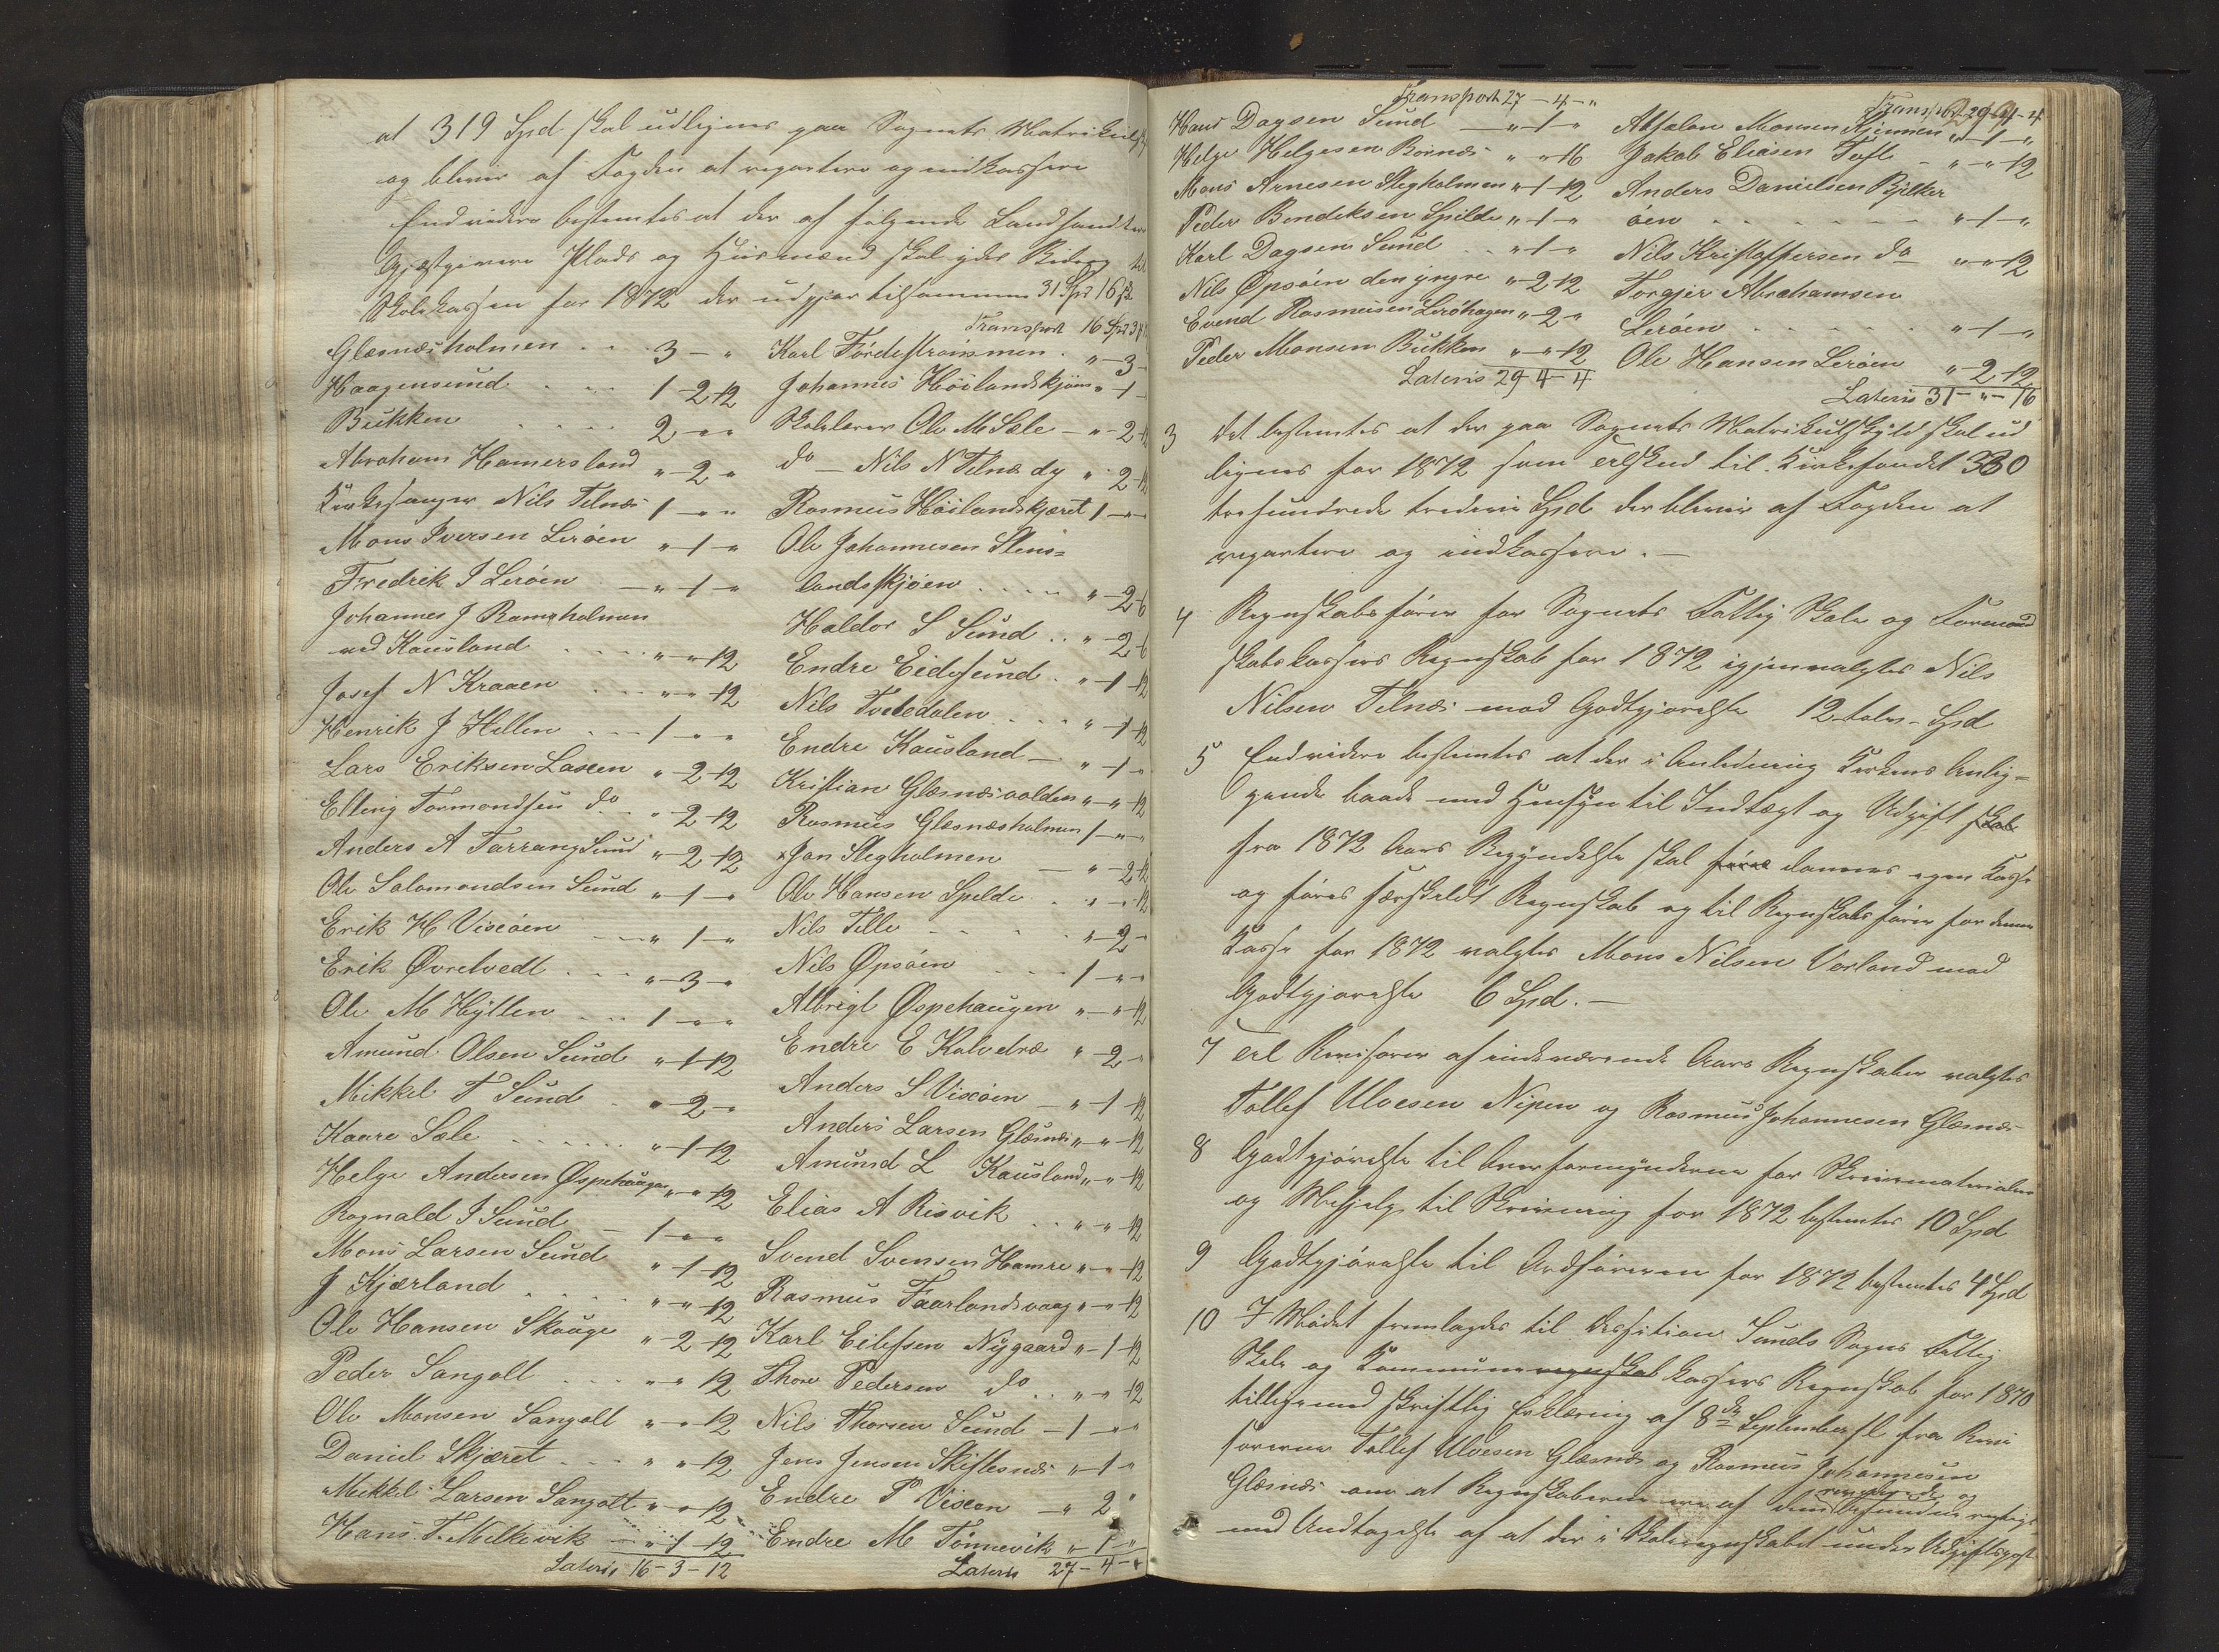 at 319 Spd skal udlignes paa Sognets Matrikulsky
og bliver af Fogden at repartere og indkassere
Endvidere bestemtes at der af følgende Landhandlere
Gjæstgivere Plads og Huusmænd skal ydes Bidrag til
Skolekassen for 1872 der udgjør tilsammen 31 Spd 16 ß
Glæsnæsholmen . . 3 - "
Haagensund . . . 1-2-12
Bukken . . . . 2 - " "
Abraham Hamersland " -2- "
Kirkesanger Nils Telnæs 1 - " "
Mons Iversen Lerøen " -1- "
Fredrik I Lerøen - " -1- "
Johannes J Ramsholmen
ved Kausland . . . . " - " -12
Josef N Kraaen . . . " - " -12
Henrik J Hellen . . - 1 - " "
Lars Eriksen Laseen " -2-12
Elling Tormondsen do . . " -2-12
Anders A Tarrang Sund " -2-12
Ole Salomondsen Sund " -1- "
Erik H Viseøen - " 1- "
Erik Øvretvedt . . - " -3- "
Ole M Hyllen . . . 1 - " "
Amund Olsen Sund " -1-12
Mikkel T Sund . " -2- "
Kaare Sæle . . . . . . " -1-12
Helge Andersen Øspehaugen " - " -12
Rognald I Sund - 1 - " "
Mons Larsen Sund " -1-12
J Kjærland . . . . " - " -12
Ole Hansen Skauge " -2-12
Peder Sangolt . . . " - " 12
Ole Monsen Sangolt " - " -12
Daniel Skjæret . . - " " -12
Mikkel Larsen Sangolt " - " -12
Hans T. Milkevik - " -1-12
Lateris 16-3-12
Transport 16 Spd 3
Karl Fördestrømmen . " -3-
Johannes Höilandskjøen " -1-
Skolelærer Ole M Sæle - " -2-12
do - Nils N Telnæs dy " 2-12
Rasmus Höilandskjæret 1 - "
Ole Johannesen Steins=
landsskjøen . . . . " -2-6
Haldor S Sund . . " -2-6
Endre Eidesund . " -1-12
Nils Tvetedalen . . . " -1-12
Endre Kausland - " -1- "
Kristian Glæsnæsvolden " - " -12
Rasmus Glæsnæsholmen 1 - " - "
Jan Stegholmen - " -2-12
Ole Hansen Spelde . " - " -12
Nils Telle - - - " -2-
Nils Øpsöen . . . 1 - " "
Albrigt Øspehaugen " - " -12
Endre E Kalvdræ " -2- "
Anders S Viseöen - " -1-12
Anders Larsen Glæsnæs " - " -12
Amund L Kausland " - " -12
Elias A Risvik . . " - " -12
Svend Svensen Hamre " - " -12
Rasmus Faarlandsvaag " - " -12
Karl Eilefsen Nygaard " -1-12
Thore Pedersen do . . " - " -12
Nils Thorsen Sund -1 - " "
Jens Jensen Skiftesnæs " -1- "
Endre P Viseøen - " 2 "
Endre M Tönnevik " -1- "
Lateris 27-4- "
Transport 27-4- "
Hans Dagsen Sund - " -1- "
Helge Helgesen Børnæs " - " 16
Mons Arnesen Stegholmen " -1-12
Peder Bendiksen Spilde " -1- "
Karl Dagsen Sund . . " -1- "
Nils Øpsøen den yngre " -2-12
Evend Rasmusen Lerøhagen " -2- "
Peder Monsen Bukken " - " -12
Lateris 29-4-4
Transport 29-4-4
Absalon Monsen " -1- "
Jakob Eliasen Toft - " - " -12
Anders Danielsen Bjelker
öen - - - - - " -1- "
Nils Kristoffersen do " - " -12
Torgjer Abrahamsen
Lerøen . . . . . " -1- "
Ole Hansen Lerøen " -2-12
Lateris 31 - " - 16
3 Det bestemtes at der paa Sognets Matrikulskyld skal ud
lignes for 1872 som tilskud til Kirkefondet 330
trehundrede tredive Spd der bliver af Fogden at
repartere og indkassere. -
4 Regnskabsfører for Sognets Fattig Skole og Formand
skabskassers Regnskab for 1872 igjenvalgtes Nils
Nilsen Telnæs mod Godtgjørelse 12 tolv - Spd
5 Endvidere bestemtes at der i Anledning Kirkens Anlig=
gende baade med Hensyn til Indtægt og Udgift skal
fra 1872 Aars Begyndelse skal føres dannes egen Kasse
og føres særskildt Regnskab og til Regnskabsfører for denne
Kasse for 1872 valgtes Mons Nilsen Vorland mod
Godtgjørelse 6 Spd. -
7 Til Revisorer af indeværende Aars Regnskaber valgtes
Tollef Ulvesen Nipen og Rasmus Johannesen Glæsnæs
8 Godtgjørelse til Overformynderne for Skrivematerialer
og Medhjelp til Skrivning for 1872 bestemtes 10 Spd
9 Godtgjørelse til Ordføreren for 1872 bestemtes 4 Spd
10 I Mødet fremlagdes til Decision Sunds Sogns Fattig
Skole og Kommune regnskab kassers Regnskab for 1870
tilligemed skriftlig Erklæring af 8de September sl fra Revi
sorerne Tollef Ulvesen Glæsnæs og Rasmus Johannesen
Glæsnæs om at Regnskaberne ere af dem reviderede og befundne rigtige
med Undtagelse af at der i Skoleregnskabet under Udgiftspost